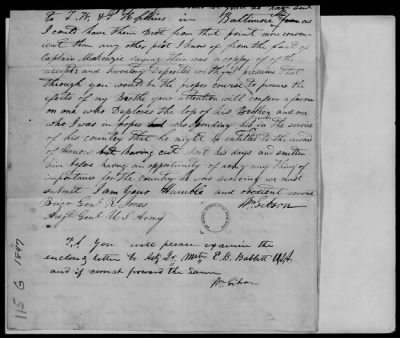 to J. W. & Hopkins in Baltimore from as
I could have them Sent from that point more conven
ient than any other place I know of from the fact of
Captain McKenzie saying their was a copy of the
receipts and Inventory Deposited with you I presume that
through you would be the proper course to procure the
effects of my Brother your attention will confer a favour
on one who Deplores the loss of his Brother and one
who I was in hopes who spending his in the service
of his country that he might be entitled to the award
of honour but having cut short his days and smitten
him before having an opportunity of doing any thing of
importance for the country he was serving we must
submit I am your Humble and obedient servt
Brigr Genl R. Jones Wm Gibson
Adjt Genl U. S. Army
P.S. You will please examine the
enclosed letter to E. B. Babbitt U.S.A.
and if correct forward the same
Wm Gibson
115 G 1847